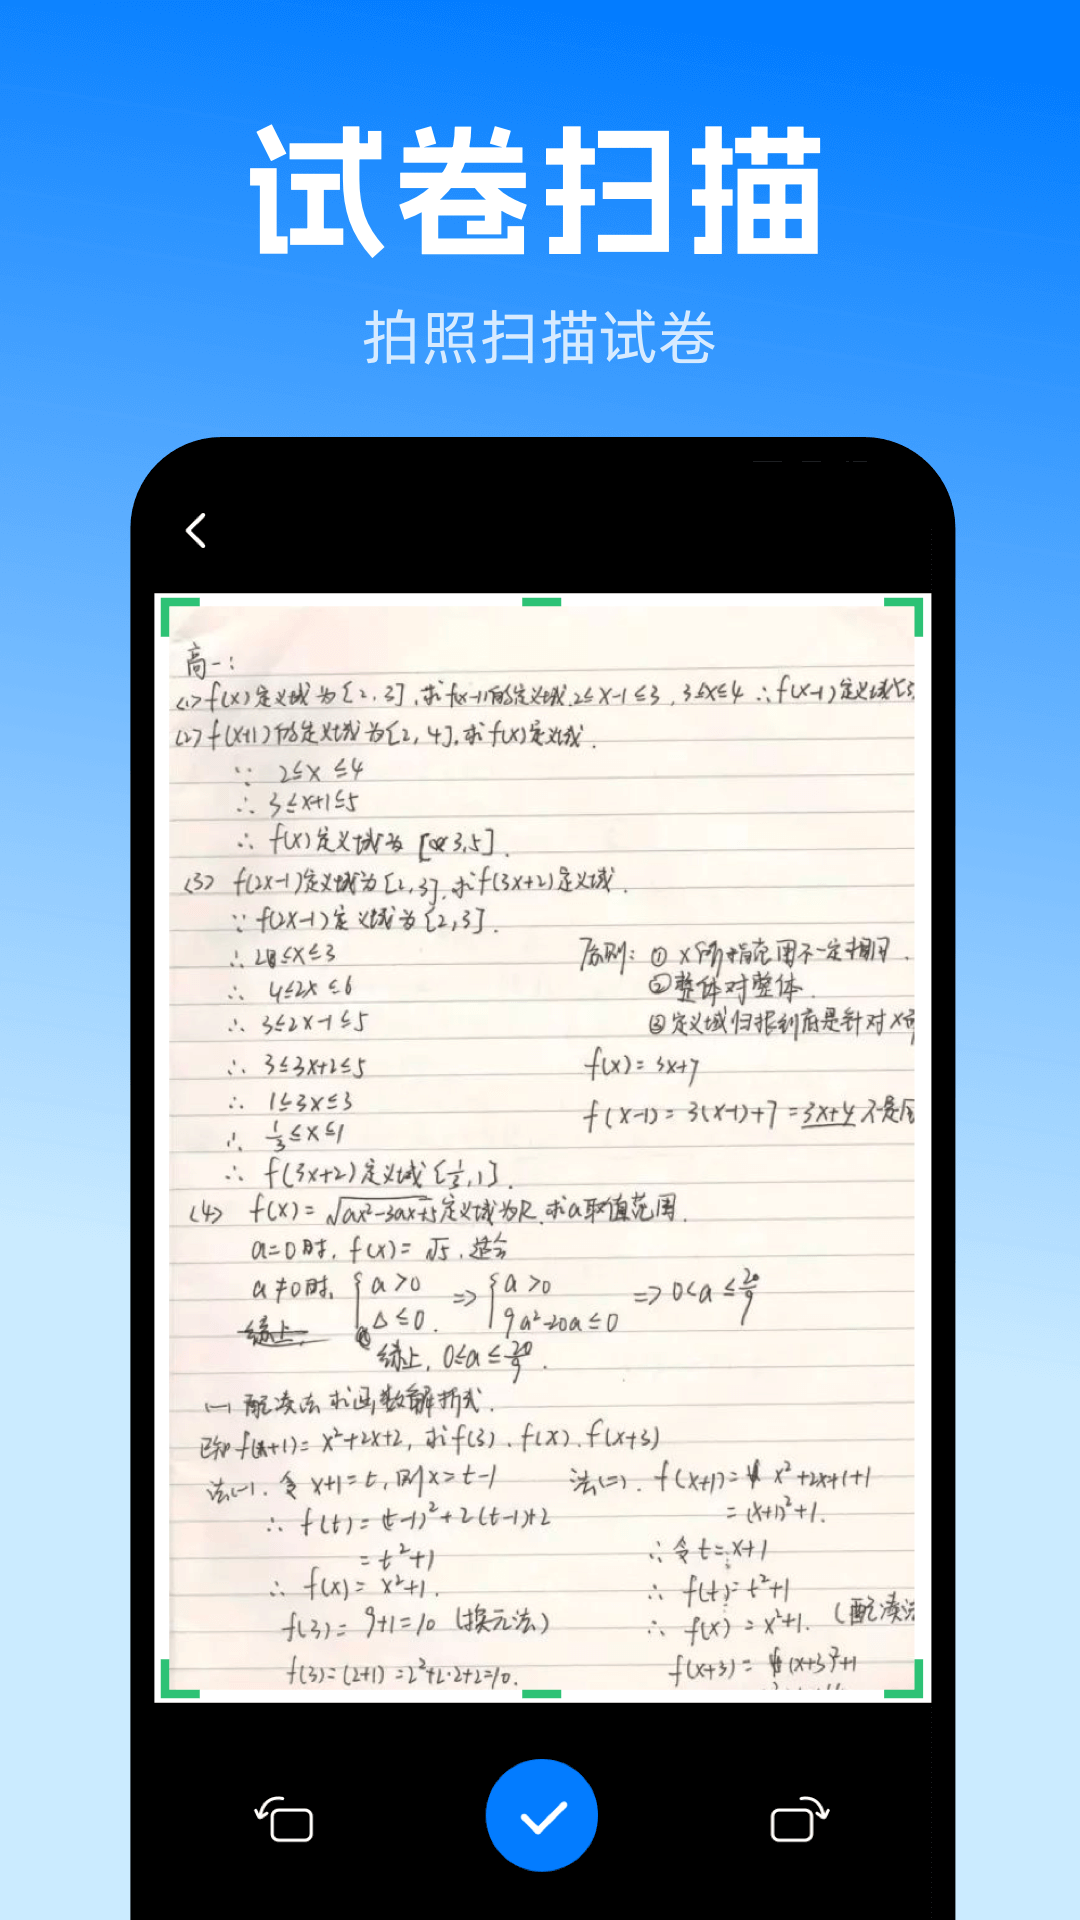 试卷扫描
拍照扫描试卷
高一:
(1) f(x)定义域为[2,3],求f(x-1)的定义域.2≤x-1≤3, 3≤x≤4 ∴f(x-1)定义域[3,
(2) f(x+1)的定义域为[2,4],求f(x)定义域.
∵ 2≤x≤4
∴ 3≤x+1≤5
∴ f(x)定义域为 [3,5].
(3) f(2x-1)定义域为[2,3],求f(3x+2)定义域.
∵ f(2x-1)定义域为[2,3].
∴ 2≤x≤3
∴ 4≤2x≤6
∴ 3≤2x-1≤5
∴ 3≤3x+2≤5
∴ 1≤3x≤3
∴ 1/3≤x≤1
∴ f(3x+2)定义域[1/3,1].
原则: ① x所指范围不一定相同.
②整体对整体.
③定义域归根到底是针对x而
f(x)=3x+7
f(x-1)=3(x-1)+7=3x+4 不是原
(4) f(x)=√ax²-3ax+5定义域为R,求a取值范围.
a=0时, f(x)=√5, 适合
a≠0时, {a>0 Δ≤0. => {a>0 9a²-20a≤0 => 0<a≤20/9
综上, 0≤a≤20/9.
(一)配凑法求函数解析式.
已知f(x+1)=x²+2x+2, 求f(3), f(x), f(x+3)
法(一). 令x+1=t, 则x=t-1
∴ f(t)=(t-1)²+2(t-1)+2
=t²+1
∴ f(x)=x²+1.
f(3)=9+1=10 (换元法)
f(3)=(2+1)=2²+2·2+2=10.
法(二). f(x+1)=x²+2x+1+1
=(x+1)²+1.
∴ 令t=x+1
∴ f(t)=t²+1
∴ f(x)=x²+1. (配凑法
f(x+3)=(x+3)²+1